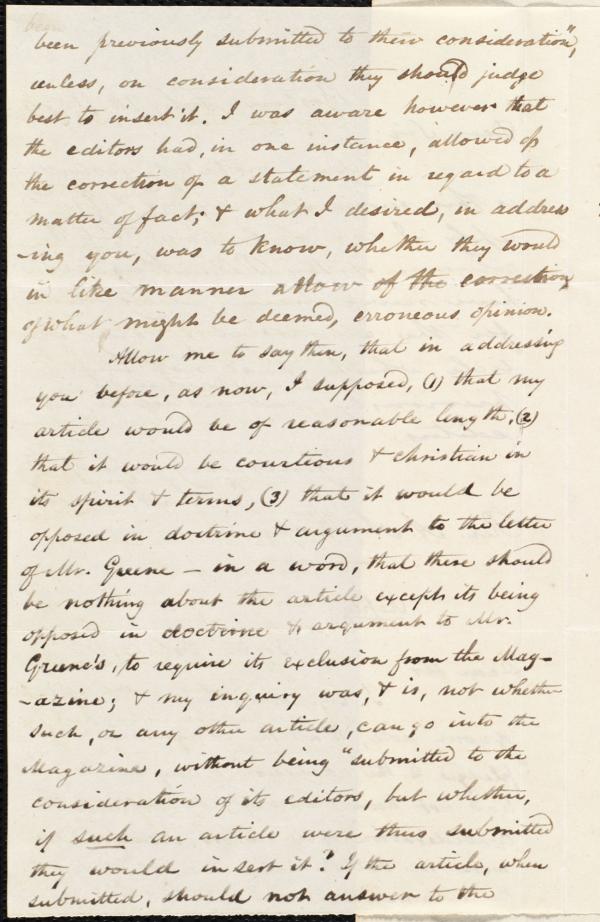 been previously submitted to their consideration",
unless, on consideration they should judge
best to insert it. I was aware however that
the editors had, in one instance, allowed of
the correction of a statement in regard to a
matter of fact; & what I desired, in address
-ing you, was to know, whether they would
in like manner allow of the correction
of what might be deemed, erroneous opinion.
Allow me to say then, that in addressing
you before, as now, I supposed, (1) that my
article would be of reasonable length, (2)
that it would be courtious & christian in
its spirit & terms, (3) that it would be
opposed in doctrine & argument to the letter
of Mr. Greene – in a word, that there should
be nothing about the article except its being
opposed in doctrine & argument to Mr.
Greene's, to require its exclusion from the Mag-
-azine; & my inquiry was, & is, not whether
such, or any other article, can go into the
Magazine, without being "submitted to the
consideration of its editors, but whether,
if such an article were thus submitted
they would insert it? If the article, when
submitted, should not answer to the